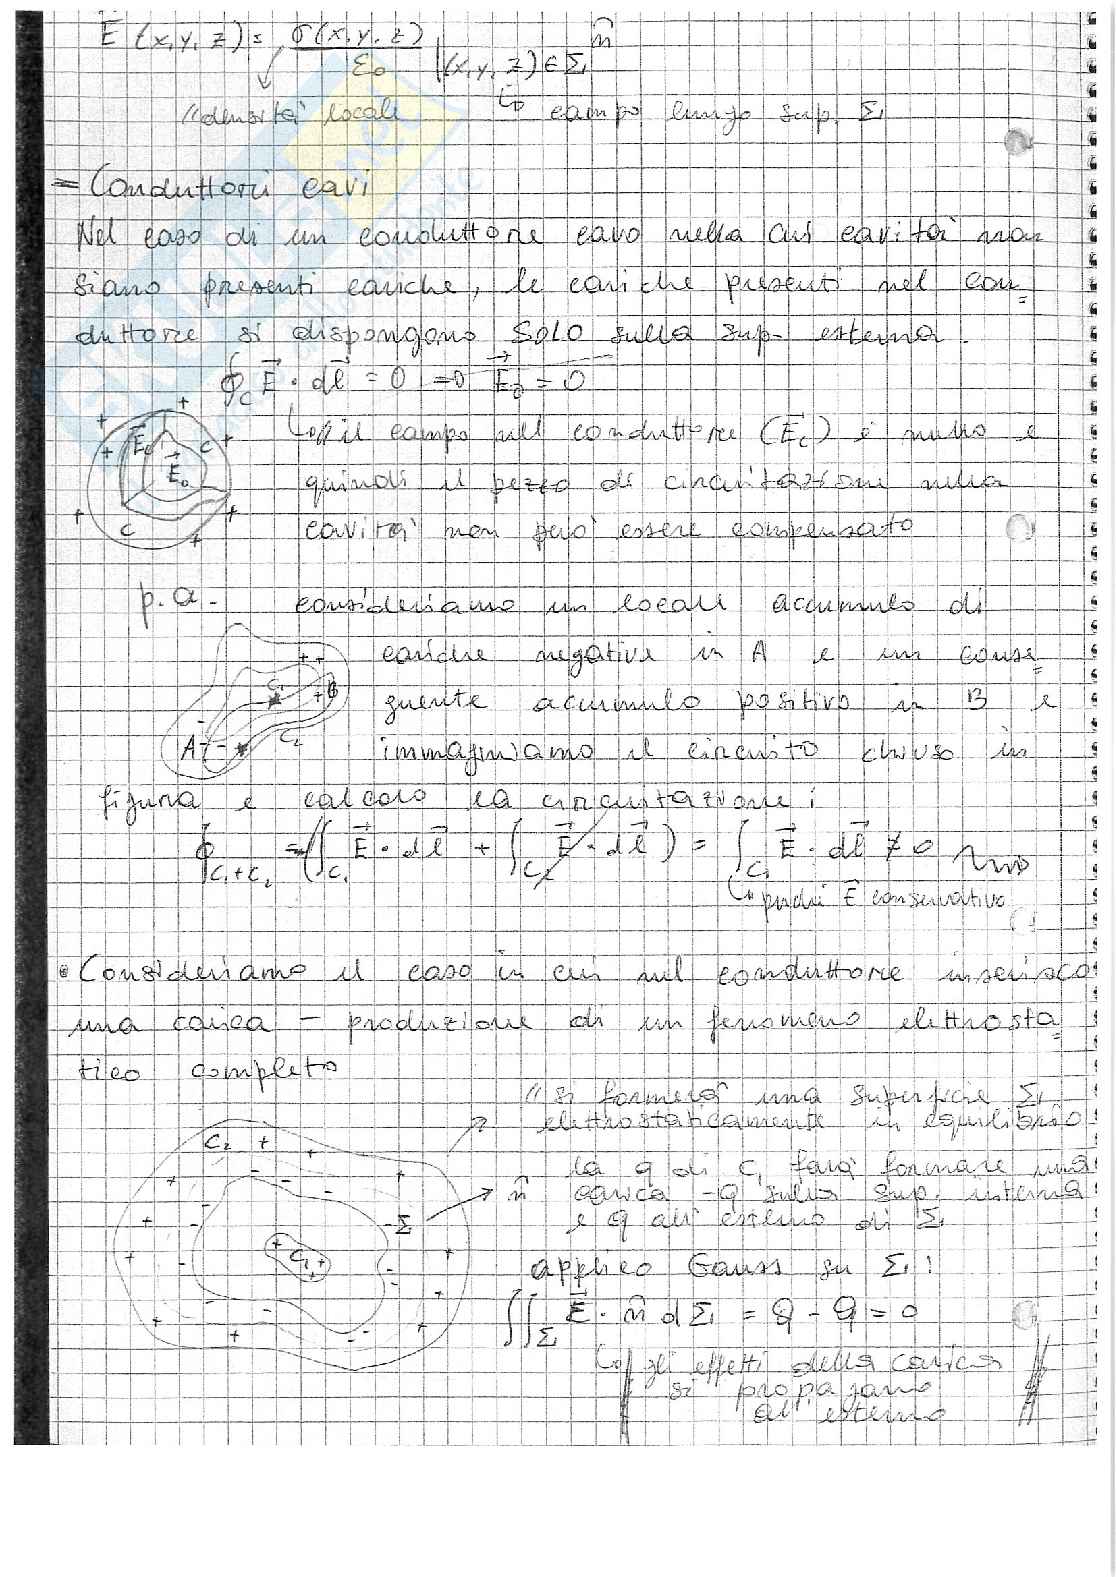 E (x,y,z) = σ(x,y,z) / ε₀ |(x,y,z)∈Σ n̂
"densità locale
↳ campo lungo sup. Σ
= Conduttori cavi
Nel caso di un conduttore cavo nella cui cavità non
siano presenti cariche, le cariche presenti nel con=
duttore si dispongono SOLO sulla sup. esterna.
∮c E⃗ · dl⃗ = 0 ⇒ E⃗₀ = 0
+ + + + + + + +
E⃗c C
E⃗₀
C
↳ // il campo nel conduttore (E⃗c) è nullo e
quindi il pezzo di circuitazione nella
cavità non può essere compensato
p.a. consideriamo un locale accumulo di
cariche negative in A e un conse=
guente accumulo positivo in B e
immaginiamo il circuito chiuso in
A - - - C₁ C₂ + + + B
figura e calcolo la circuitazione:
∮C₁+C₂ = (∫C₁ E⃗ · dl⃗ + ∫C₂ E⃗ · dl⃗) = ∫C₁ E⃗ · dl⃗ ≠ 0
↳ perché E⃗ conservativo
• Consideriamo il caso in cui nel conduttore inserisco
una carica – produzione di un fenomeno elettrosta=
tico completo
"si formerà una superficie Σ
elettrostaticamente in equilibrio
la q di C₁ farà formare una
n̂ carica -q sulla sup. interna
e q all'esterno di Σ
C₂ + + + + + + + + + +
- - - - - - - - Σ
+ C₁ + +
applico Gauss su Σ:
∬Σ E⃗ · n̂ dΣ = Q - Q = 0
↳ // gli effetti della carica
si propagano
all'esterno //